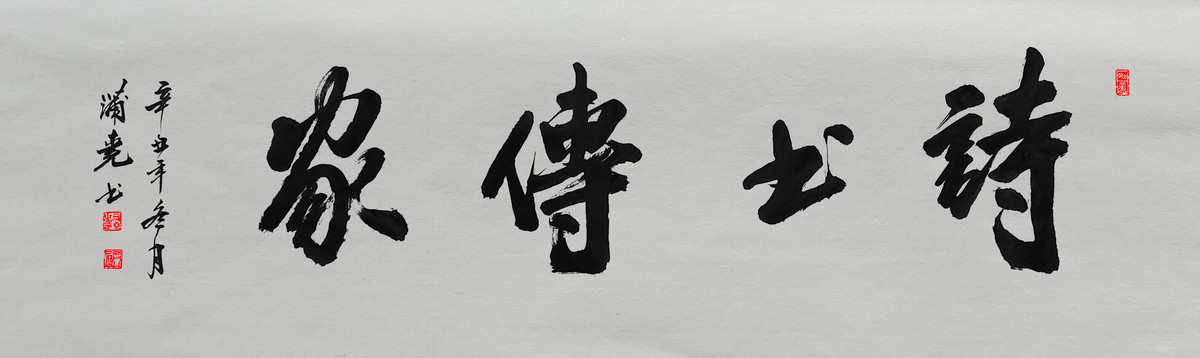 詩书傳家
辛丑年冬月
蒲尧书